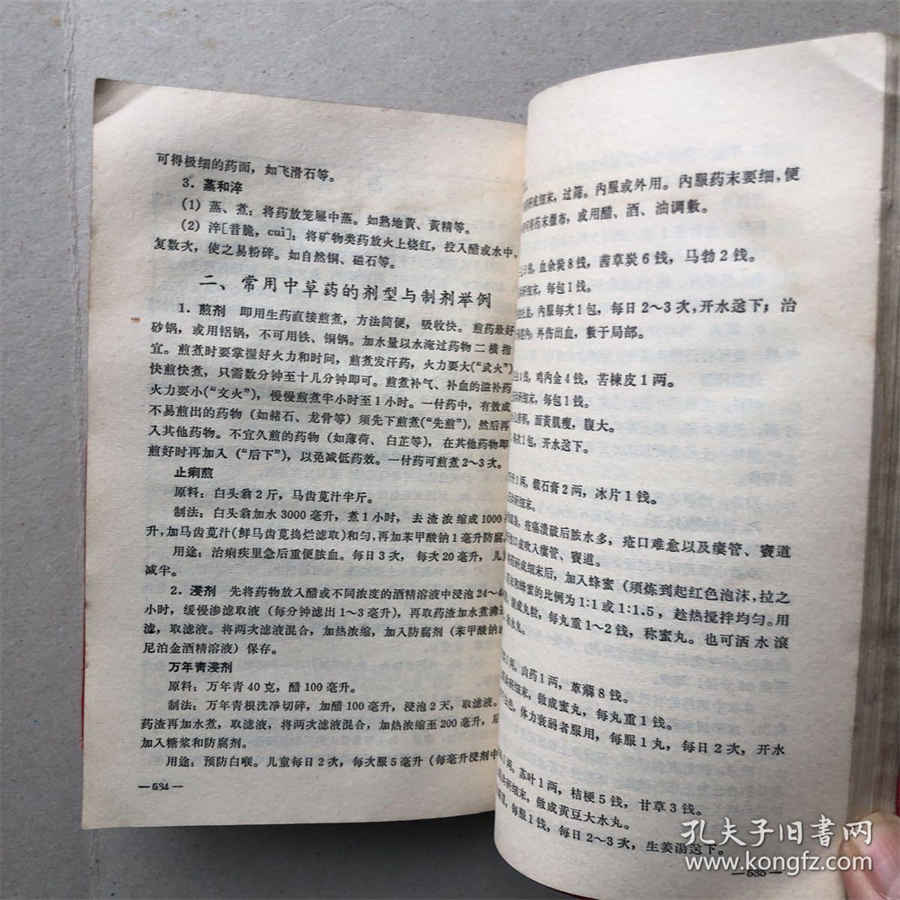 可得极细的药面，如飞滑石等。
3．蒸和淬
(1) 蒸、煮：将药放笼屉中蒸。如熟地黄、黄精等。
(2) 淬[音脆，cuì]：将矿物类药放火上烧红，投入醋或水中，
复数次，使之易粉碎。如自然铜、磁石等。
二、常用中草药的剂型与制剂举例
1．煎剂 即用生药直接煎煮，方法简便，吸收快。煎药最好
砂锅，或用铝锅，不可用铁、铜锅。加水量以水淹过药物二横指
宜。煎煮时要掌握好火力和时间，煎煮发汗药，火力要大(“武火”)
快煎快煮，只需数分钟至十几分钟即可。煎煮补气、补血的滋补药
火力要小(“文火”)，慢慢煎煮半小时至1小时。一付药中，有效成
不易煎出的药物（如赭石、龙骨等）须先下煎煮(“先煎”)，然后再
入其他药物。不宜久煎的药物（如薄荷、白芷等），在其他药物即
煎好时再加入（“后下”），以免减低药效。一付药可煎煮2～3次。
止痢煎
原料：白头翁2斤，马齿苋汁半斤。
制法：白头翁加水3000毫升，煮1小时，去渣浓缩成1000
升，加马齿苋汁(鲜马齿苋捣烂滤取)和匀，再加苯甲酸钠1毫升防腐
用途：治痢疾里急后重便脓血。每日3次，每次20毫升，儿
减半。
2．浸剂 先将药物放入醋或不同浓度的酒精溶液中浸泡24～4
小时，缓慢渗滤取液（每分钟滤出1～3毫升），再取药渣加水煮沸
滤，取滤液。将两次滤液混合，加热浓缩，加入防腐剂（苯甲酸钠
尼泊金酒精溶液）保存。
万年青浸剂
原料：万年青40克，醋100毫升。
制法：万年青根洗净切碎，加醋100毫升，浸泡2天，取滤液。
药渣再加水煮，取滤液，将两次滤液混合，加热浓缩至200毫升，
加入糖浆和防腐剂。
用途：预防白喉。儿童每日2次，每次服5毫升（每毫升浸剂中
—634—
研成细末，过筛。内服或外用。内服药末要细，便
将药末撒布，或用醋、酒、油调敷。
血余炭8钱，茜草炭6钱，马勃2钱。
研细末，每包1钱。
血，内服每次1包，每日2～3次，开水送下；治
外伤出血，敷于局部。
1钱，鸡内金4钱，苦楝皮1两。
研细末，每包1钱。
面黄肌瘦，腹大。
1包，开水送下。
1两，煅石膏2两，冰片1钱。
研细末。
疮疡溃破后脓水多，疮口难愈以及瘘管、窦道
吹入瘘管、窦道。
研成细末后，加入蜂蜜（须炼到起红色泡沫，拉之
和蜂蜜的比例为1:1或1:1.5，趁热搅拌均匀。用
做成丸粒，每丸重1～2钱，称蜜丸。也可洒水滚
山药1两，萆薢8钱。
研细末，做成蜜丸，每丸重1钱。
体力衰弱者服用，每服1丸，每日2次，开水
苏叶1两，桔梗5钱，甘草3钱。
研细末，做成黄豆大水丸。
每服1钱，每日2～3次，生姜汤送下。
—635—
孔夫子旧书网
www.kongfz.com